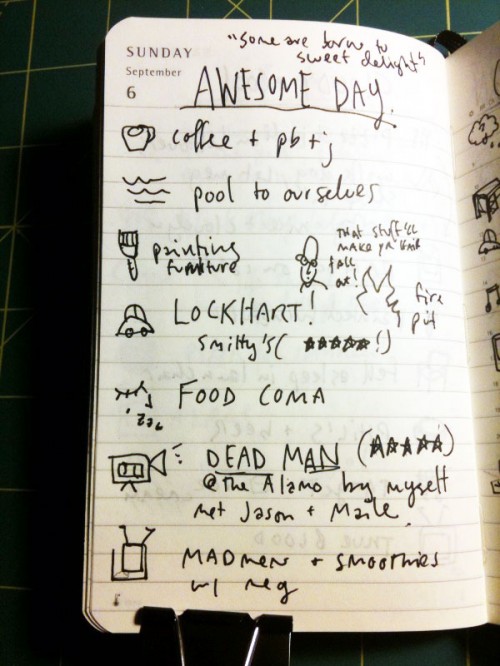 "some are born to
sweet delight"
SUNDAY
September
6
AWESOME DAY.
coffee + pb + j
pool to ourselves
painting
furniture
THAT STUFF'LL
MAKE YA HAIR
fall
out!
fire
pit
LOCKHART!
Smitty's (★★★★★!)
FOOD COMA
zzz
DEAD MAN (★★★★★)
@The Alamo by myself
met Jason + Maile
MADMEN + SMOOTHIES
w/ meg